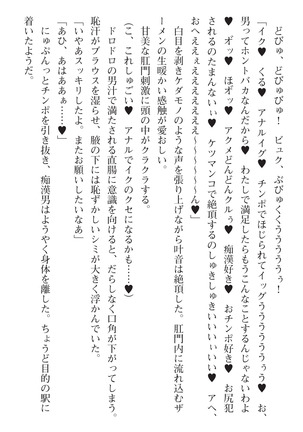 どびゅ、どびゅびゅ！　ビュク、ぶびゅくくうううううぅ！
「イク♥　くる♥　アナルイク♥　チンポでほじられてイッグうううううぅう♥　お、男ってホントバカなんだから♥　わたしで満足したらもうこんなことするんじゃないわよ♥　オッ♥　ほオッ♥　アクメどんどんクルぅ♥　痴漢好き♥　おチンポ好き♥　お尻犯されるのたまんないぃ♥　ケツマンコで絶頂するのしゅきしゅきいいいいぃ♥　アヘ、おへえぇぇえええええ〜〜〜〜〜ん♥」
　白目を剥きケダモノのような声を張り上げながら叶音は絶頂した。肛門内に流れ込むザーメンの生暖かい感触が愛おしい。
　甘美な肛門刺激に頭の中がクラクラする。
（こ、これしゅごい♥　アナルでイクのクセになるかも……♥）
　ドロドロの男汁で満たされる直腸に意識を向けると、だらしなく口角が下がってしまう。恥汗がブラウスを湿らせ、腋の下には恥ずかしいシミが大きく浮かんでいた。
「いやぁスッキリしたよ。またお願いしたいなあ」
「あひ、あはあぁ……♥」
　にゅぷんっとチンポを引き抜き、痴漢男はようやく身体を離した。ちょうど目的の駅に着いたようだ。